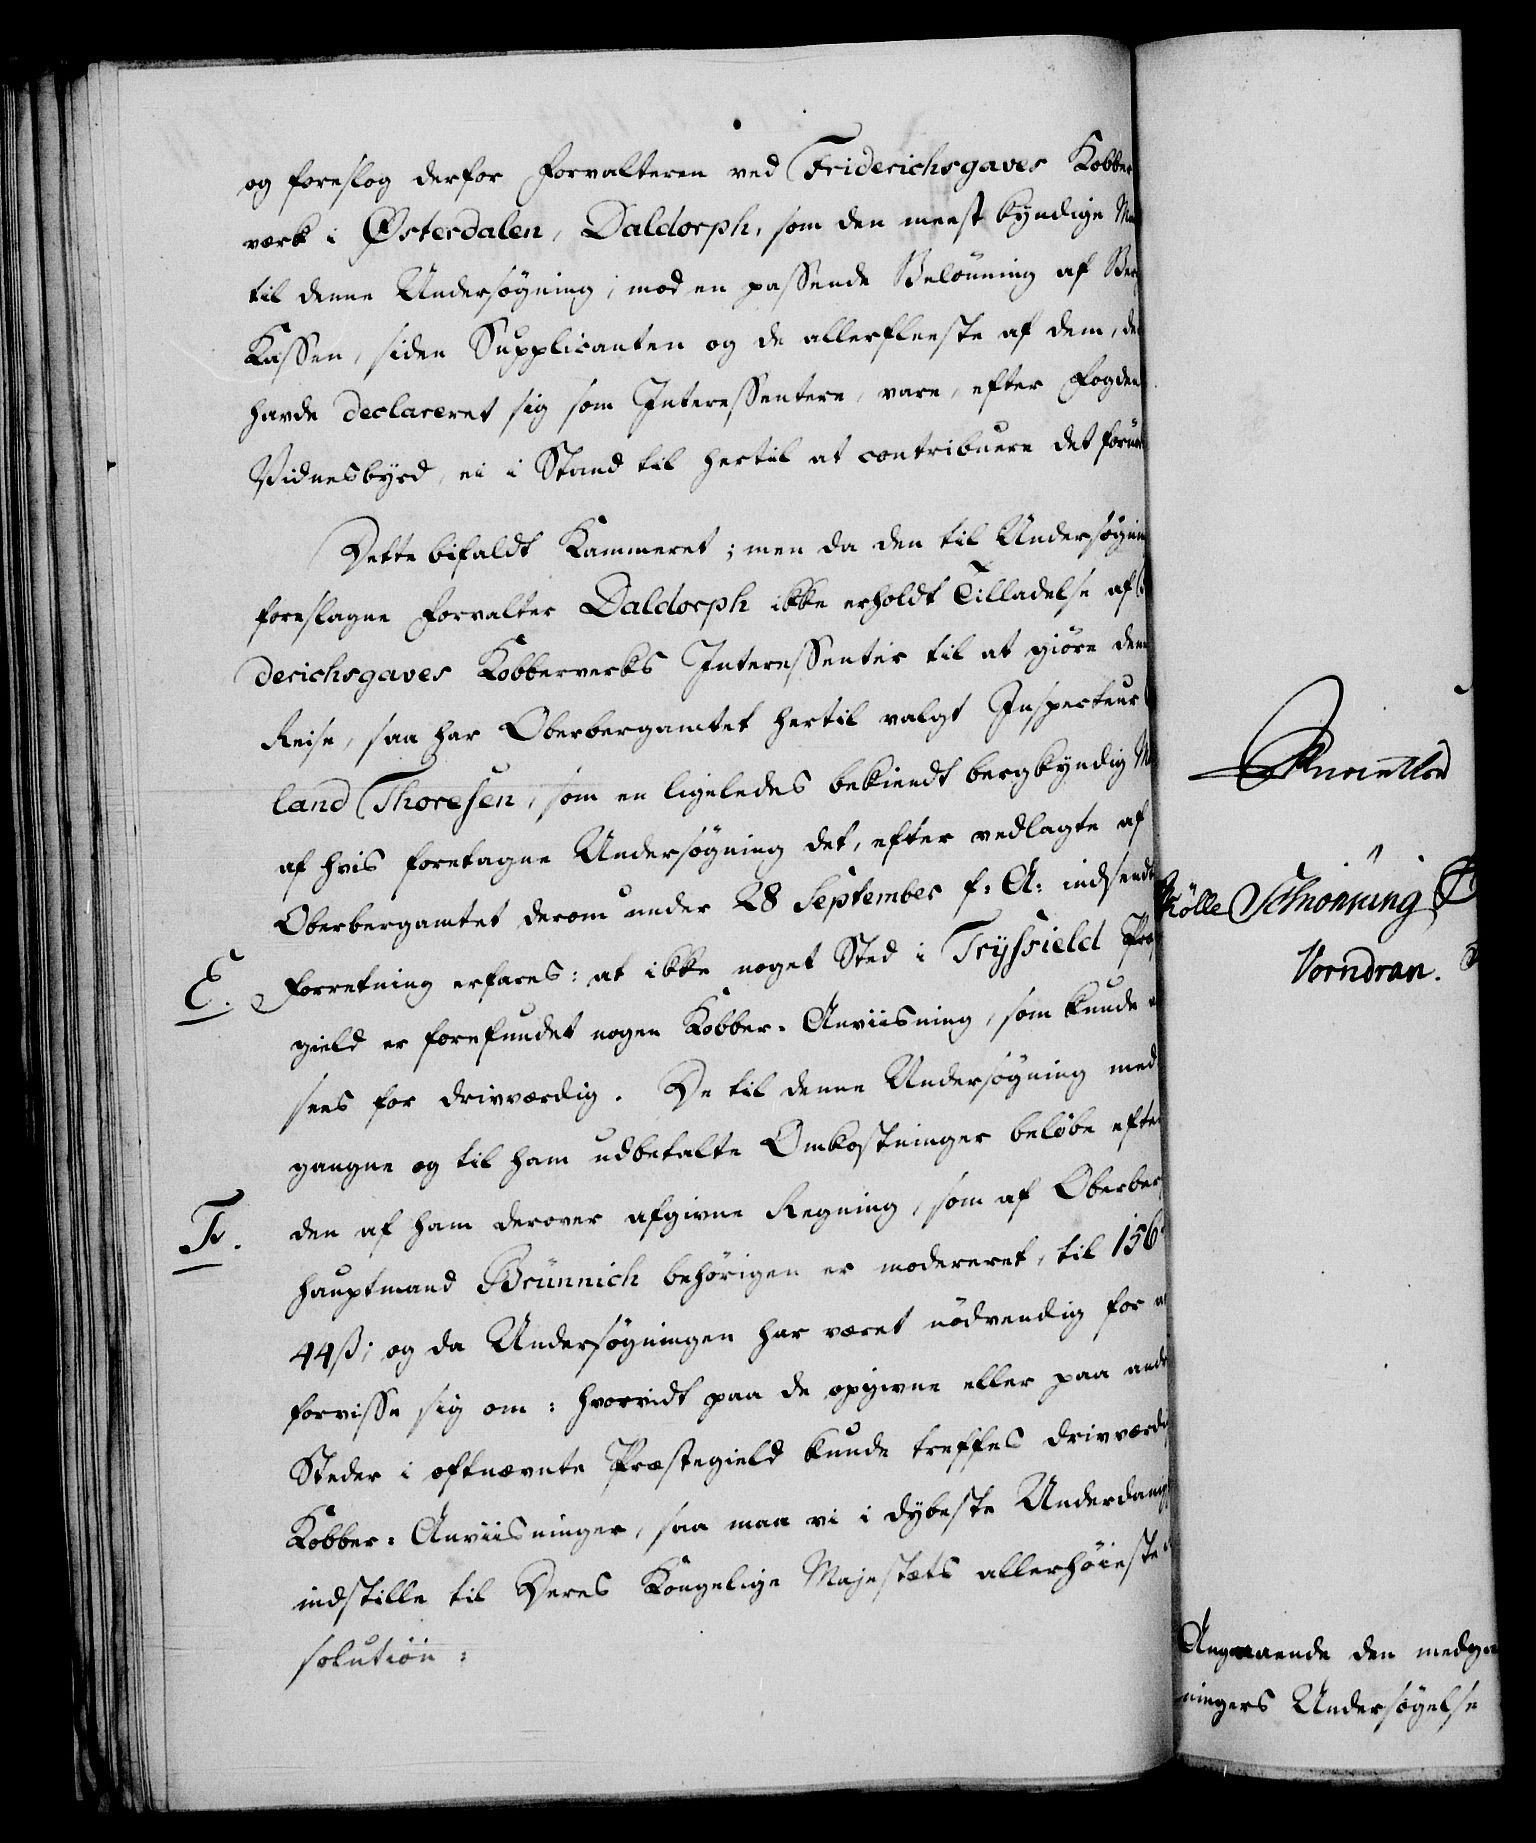 og foreslog derfor Forvalteren ved Friderichsgaves Kobber
værk i Østerdalen, Daldorph, som den meest kyndige
til denne Undersøgning, mod en passende Belønning af
Kassen, siden Supplicanten og de allerfleeste af dem, de
havde declareret sig som Interessentere, vare, efter Fogdens
Vidnesbyrd, ei i Stand til hertil at contribuere det
Dette bifaldt Kammeret; men da den til Undersøgnin
foreslagne Forvalter Daldorph ikke erholdt Tilladelse af
derichsgaves Kobberverks Interessenter til at giöre den
Reise, saa har Oberbergamtet hertil valgt Inspecteur
land Thoresen, som en ligeledes bekiendt bergkyndig
af hvis foretagne Undersøgning det, efter vedlagte af
Oberbergamtet derom under 28 September f: A: indsendte
E. Forretning erfares: at ikke noget Sted i Trysfield Præ
gield er forefundet nogen Kobber-Anviisning, som kunde
sees for drivværdig. De til denne Undersøgning med
gangne og til ham udbetalte Omkostninger beløbe efter
F. den af ham derover afgivne Regning, som af Oberber
hauptmand Brünnich behørigen er modereret, til 156
44ß; og da Undersøgningen har været nödvendig for at
forvisse sig om: hvorvidt paa de opgivne eller paa andre
Steder i oftnævnte Præstegield kunde treffes drivværdi
Kobber-Anviisninger, saa maa vi i dybeste Underdanig
indstille til Deres Kongelige Majestæts allerhöieste
solution:
Schönning
Vorndran.
Angaaende den medgi
ningers Undersøgelse